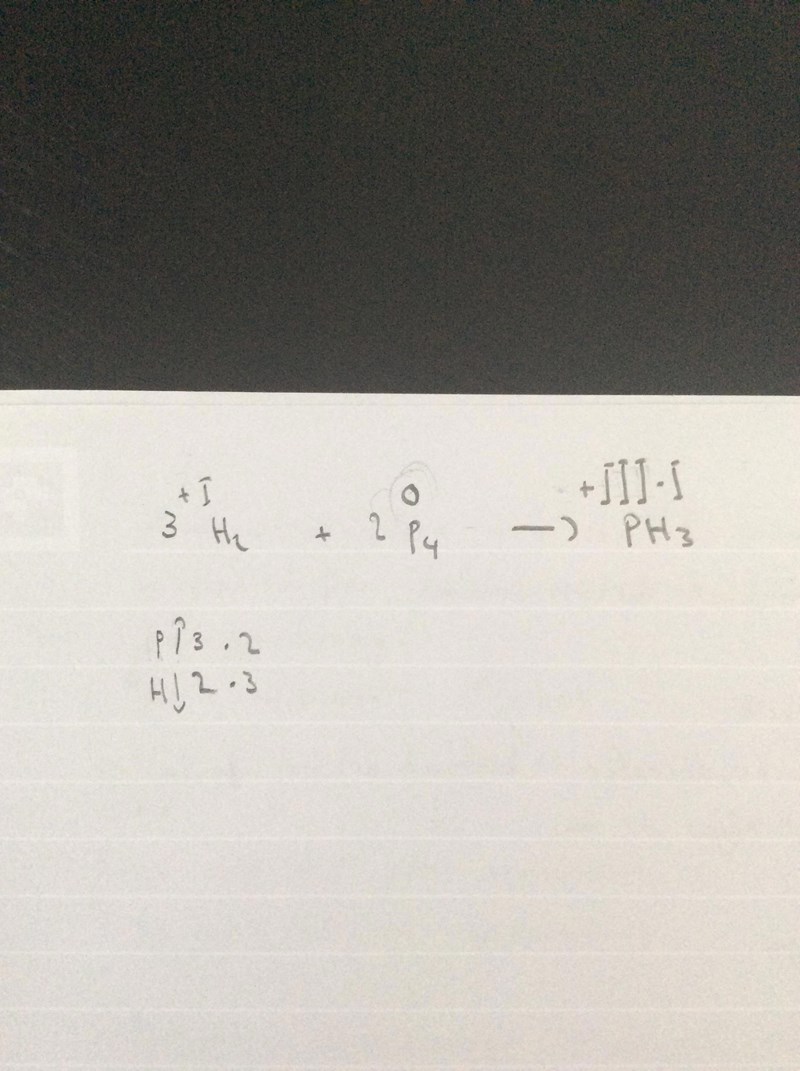 +I 0 +III -I
3 H₂ + 2 P₄ → PH₃
P↑3 · 2
H↓2 · 3